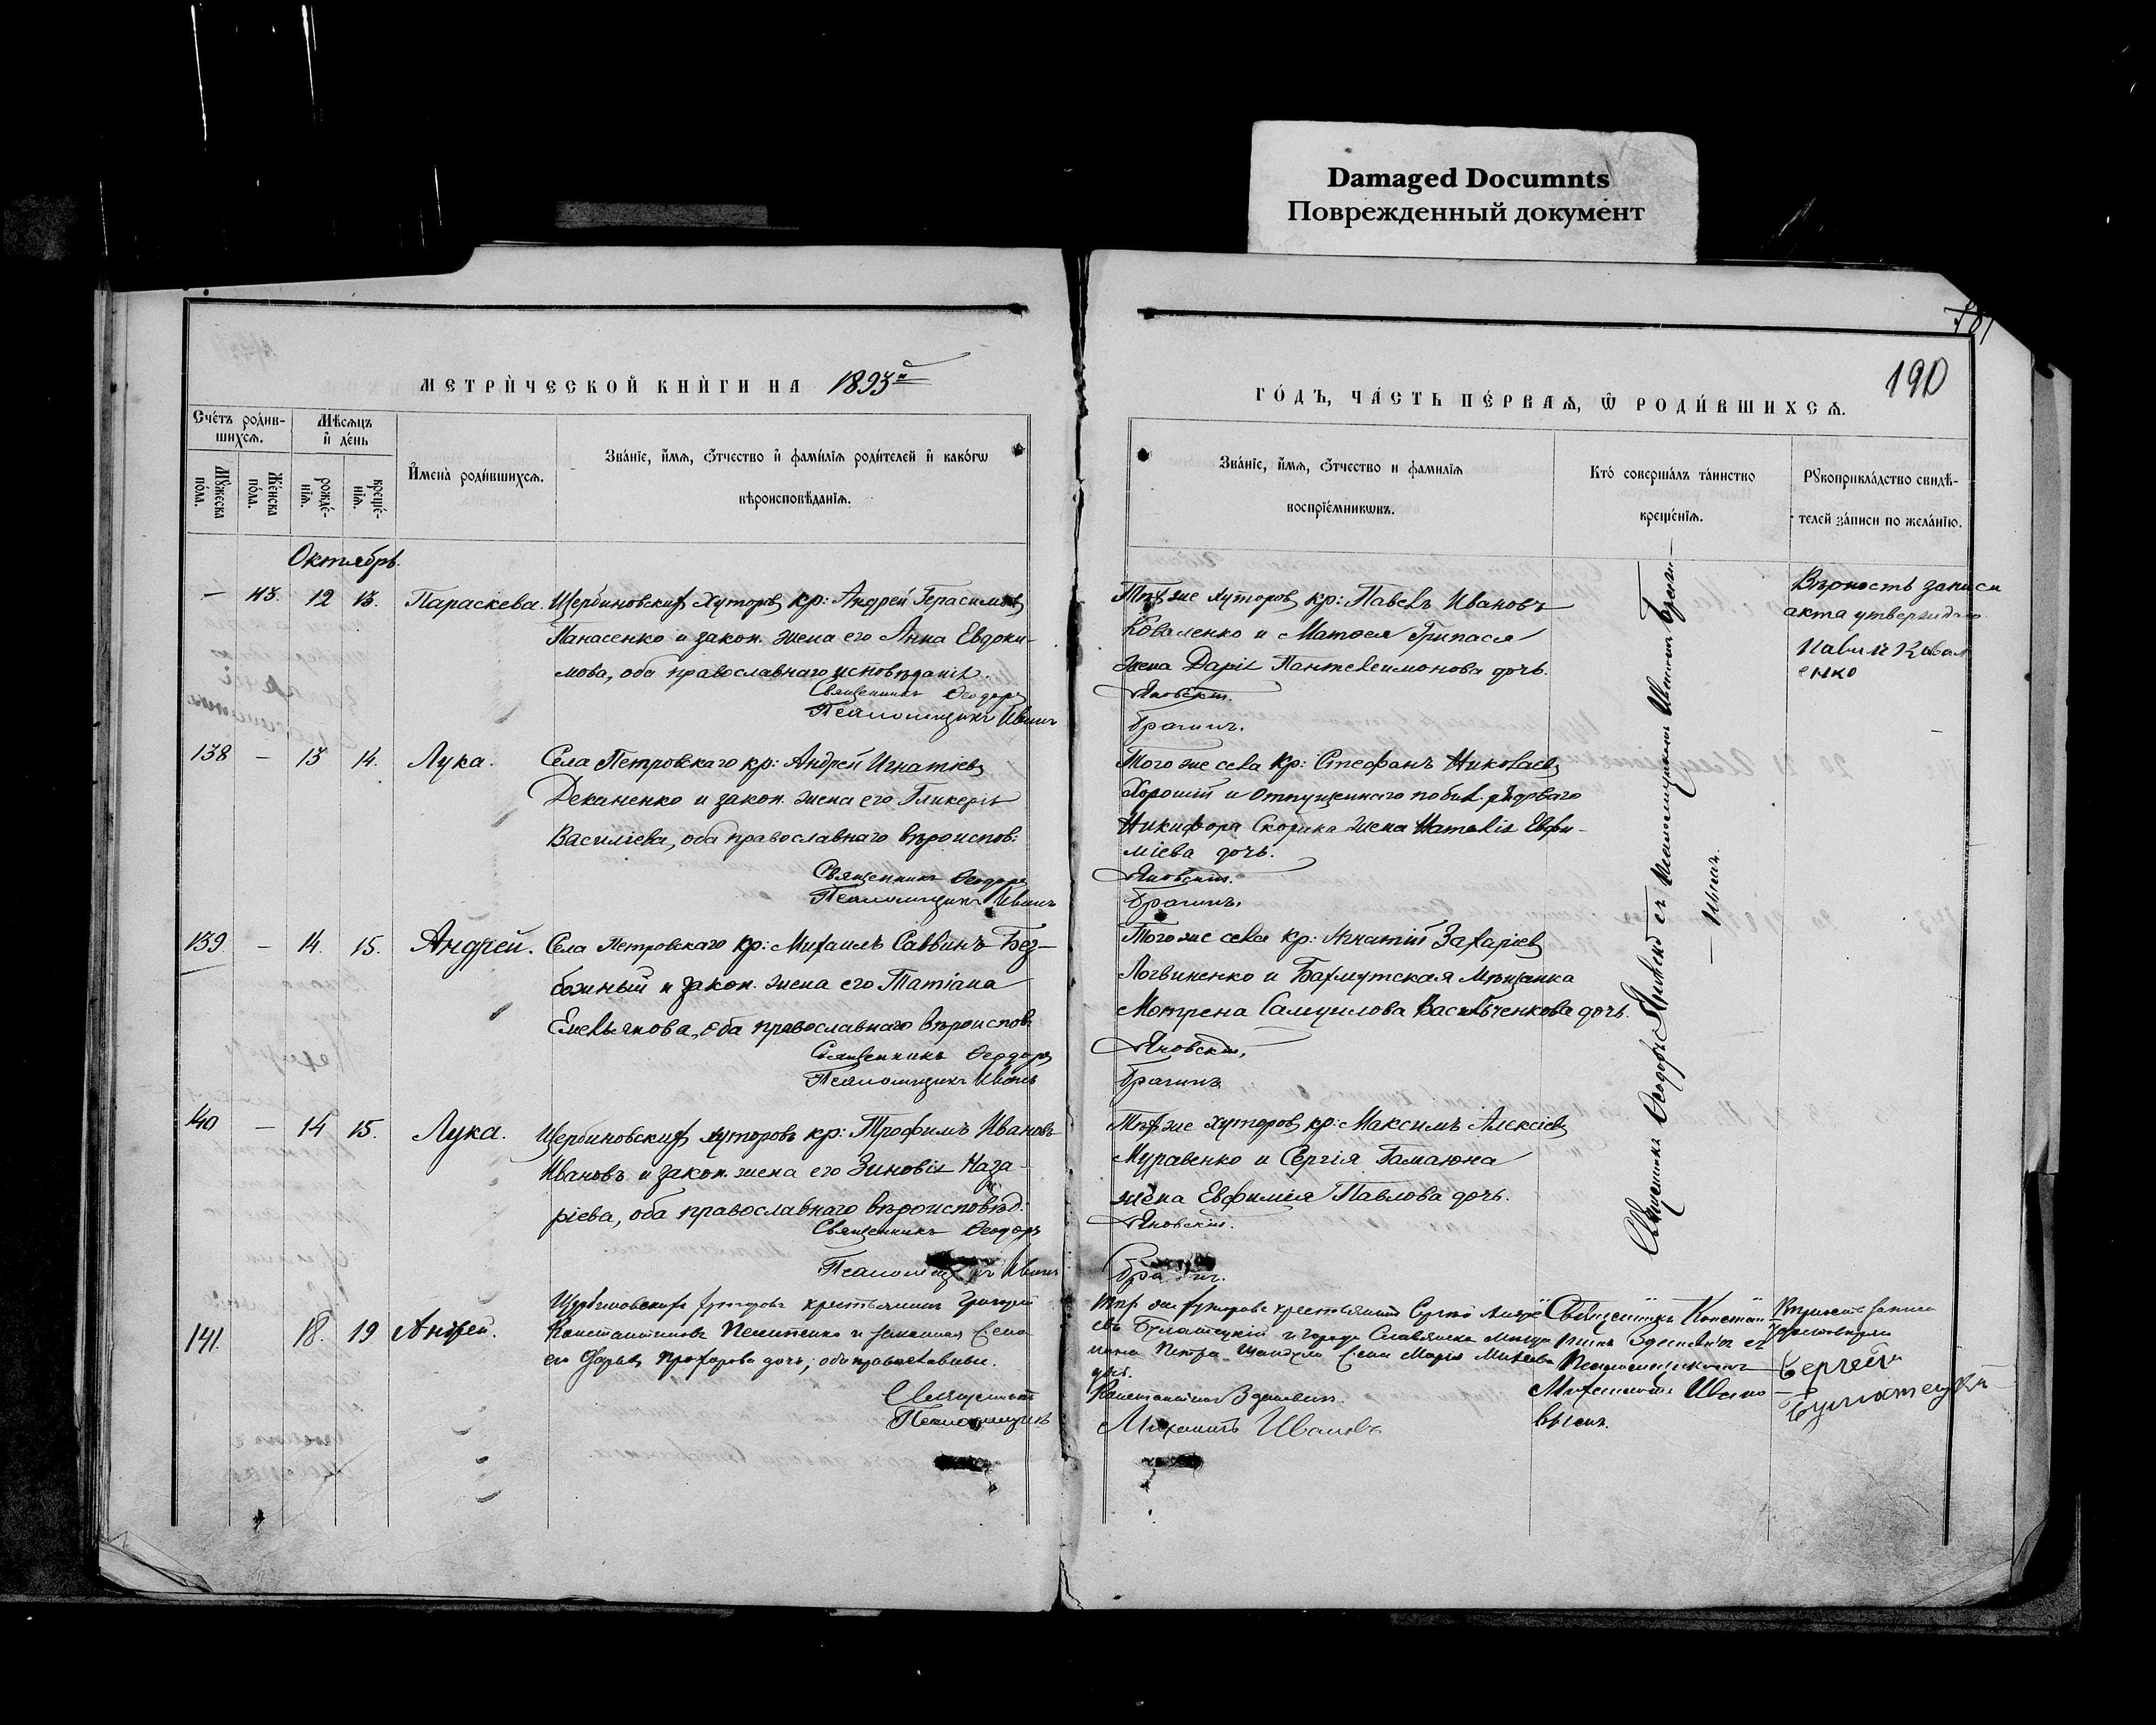 Damaged Documnts
Поврежденный документ
190
МЕТРИЧЕСКОЙ КНИГИ НА 1893й
ГОДЪ, ЧАСТЬ ПЕРВАЯ, Ѿ РОДИВШИХСЯ.
Счетъ родив-
шихся.
Мѣсяцъ
и день
Мужеска
пола.
Женска
пола.
рожде-
нія.
креще-
нія.
Имена родившихся.
Званіе, имя, отчество и фамилія родителей и какогѡ
вѣроисповѣданія.
Званіе, имя, отчество и фамилія
воспріемникѡвъ.
Кто совершалъ таинство
крещенія.
Рукоприкладство свидѣ-
телей записи по желанію.
Октябрь.
— 12 13. Параскева. Щербиновскихъ хуторовъ кр: Андрей Герасимовъ
Панасенко и закон. жена его Анна Евдоки-
мова, оба православнаго исповѣданія.
Священникъ Ѳеодоръ
Псаломщикъ Иванъ
Тѣхъ же хуторовъ кр: Павелъ Ивановъ
Коваленко и Матѳея Грипася
жена Дарія Пантелеимонова дочь.
Яновскій.
Брагинъ.
Вѣрность записи
акта утверждаю
Павилъ Ковал
енко
138 — 13 14. Лука. Села Петровскаго кр: Андрей Игнатіевъ
Деканенко и закон. жена его Гликерія
Василіева, оба православнаго вѣроиспов:
Священникъ Ѳеодоръ
Псаломщикъ Иванъ
Того же села кр: Стефанъ Николаевъ
Хорошій и отпущеннаго по бил. рядоваго
Никифора Скорика жена Наталія Евфи-
міева дочь.
Яновскій.
Брагинъ.
139 — 14. 15. Андрей. Села Петровскаго кр: Михаилъ Саввинъ Без-
божный и закон. жена его Татіана
Емельянова, оба православнаго вѣроиспов:
Священникъ Ѳеодоръ
Псаломщикъ Иванъ
Того же села кр: Игнатій Захаріевъ
Логвиненко и Бахмутская мѣщанка
Мотрена Самуилова Васильченкова дочь.
Яновскій.
Брагинъ
140 — 14 15. Лука. Щербиновскихъ хуторовъ кр: Трофимъ Ивановъ
Ивановъ и закон. жена его Зиновія Наза-
ріева, оба православнаго вѣроисповѣд:
Священникъ Ѳеодоръ
Псаломщикъ Иванъ
Тѣхъ же хуторовъ кр: Максимъ Алексіевъ
Муравенко и Сергія Гамаюна
жена Евфимія Павлова дочь.
Яновскій.
Брагинъ.
Священникъ Ѳеодоръ Яновскій съ псаломщикомъ Иваномъ Браги-
— нымъ.
141. 18. 19 Андрей. Щербиновскихъ хуторовъ крестьянинъ Григорій
Константиновъ и законная жена
его Прохорова дочь; оба православные.
Священникъ
Псаломщикъ
Тѣхъ же хуторовъ крестьянинъ Сергій Андре
евъ Булатецкій и города Славянска мѣща
нина Петра жена Марія Матвѣева
дочь.
Константинъ Здановичъ.
Михаилъ Ивановъ
Священникъ Констан
тинъ Здановичъ съ
Псаломщикомъ
Михаиломъ Ивано
вымъ.
Вѣрность записи
Сергей
Булатецкий